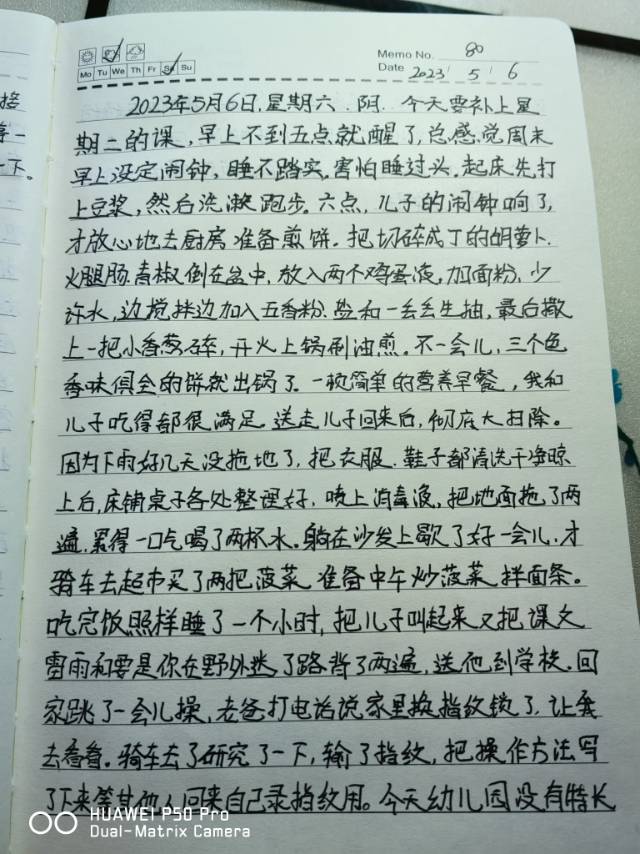 接
一
下。
Memo No. 80
Mo Tu We Th Fr Sa Su
Date 2023 / 5 / 6
2023年5月6日,星期六.阴.今天要补上星
期二的课,早上不到五点就醒了,总感觉周末
早上没定闹钟,睡不踏实.害怕睡过头.起床先打
上豆浆,然后洗漱跑步.六点,儿子的闹钟响了,
才放心地去厨房准备煎饼.把切碎成丁的胡萝卜.
火腿肠.青椒倒在盆中,放入两个鸡蛋液.加面粉.少
许水,边搅拌边加入五香粉.盐和一丢丢生抽,最后撒
上一把小香葱碎,开火上锅刷油煎。不一会儿,三个色
香味俱全的饼就出锅了.一顿简单的营养早餐,我和
儿子吃得都很满足.送走儿子回来后,彻底大扫除。
因为下雨好几天没拖地了,把衣服.鞋子都清洗干净晾
上后,床铺桌子各处整理好,喷上消毒液,把地面拖了两
遍,累得一口气喝了两杯水。躺在沙发上歇了好一会儿.才
骑车去超市买了两把菠菜准备中午炒菠菜拌面条。
吃完饭照样睡了一个小时,把儿子叫起来又把课文
雷雨和要是你在野外迷了路背了两遍,送他到学校.回
家跳了一会儿操,老爸打电话说家里换指纹锁了,让我
去看看。骑车去了研究了一下,输了指纹,把操作方法写
了下来等其他人回来自己录指纹用。今天幼儿园没有特长
HUAWEI P50 Pro
Dual-Matrix Camera